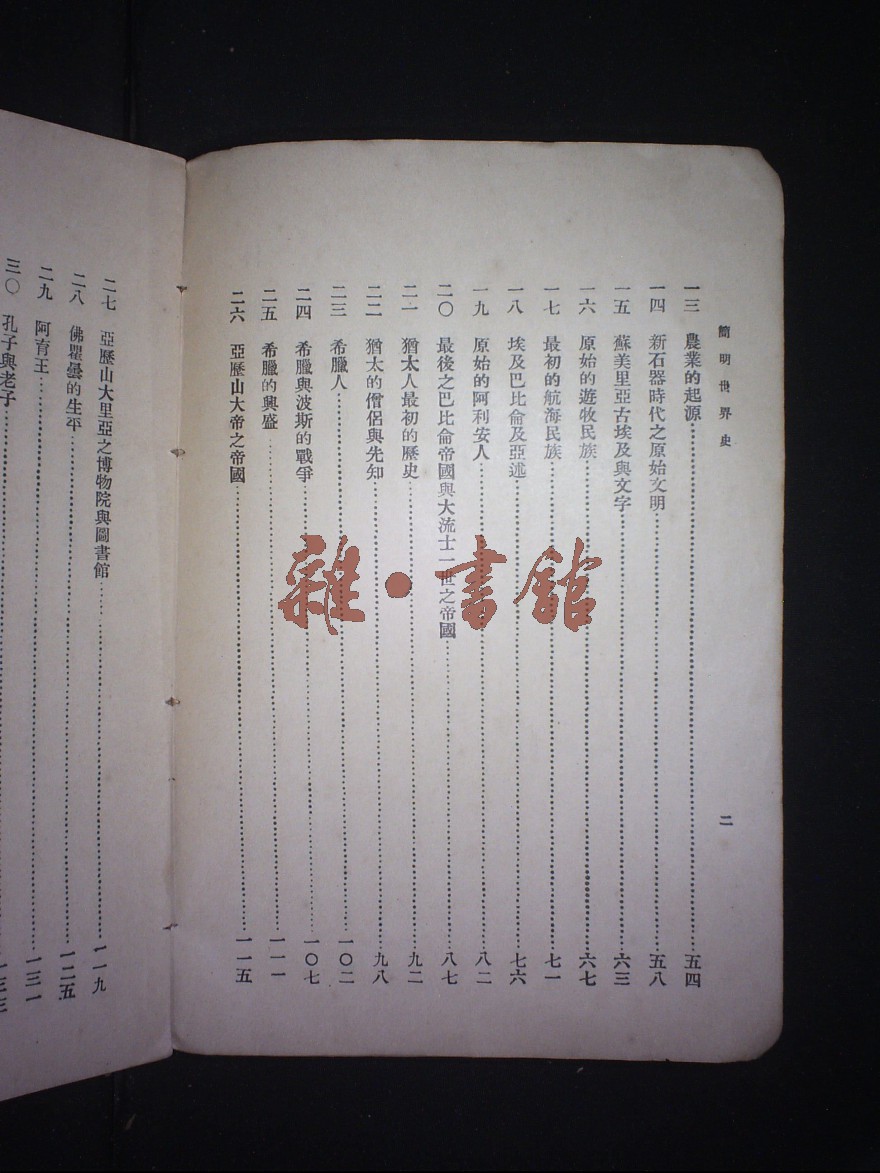 簡明世界史
二
一三 農業的起源 五四
一四 新石器時代之原始文明 五八
一五 蘇美里亞古埃及與文字 六三
一六 原始的遊牧民族 六七
一七 最初的航海民族 七一
一八 埃及巴比侖及亞述 七六
一九 原始的阿利安人 八二
二〇 最後之巴比侖帝國與大流士一世之帝國 八七
二一 猶太人最初的歷史 九二
二二 猶太的僧侶與先知 九八
二三 希臘人 一〇二
二四 希臘與波斯的戰爭 一〇七
二五 希臘的興盛 一一一
二六 亞歷山大帝之帝國 一一五
二七 亞歷山大里亞之博物院與圖書館 一一九
二八 佛瞿曇的生平 一二五
二九 阿育王 一三一
三〇 孔子與老子 一三三
雜·書館